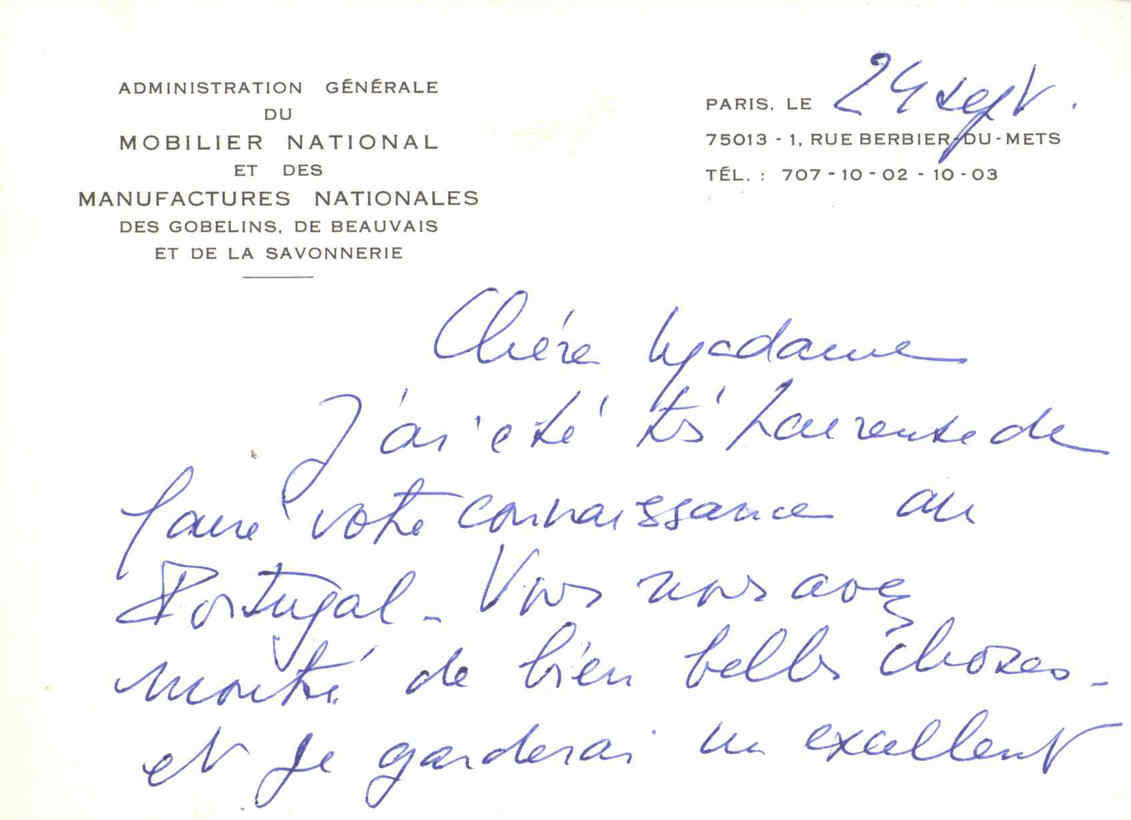 ADMINISTRATION GÉNÉRALE
DU
MOBILIER NATIONAL
ET DES
MANUFACTURES NATIONALES
DES GOBELINS, DE BEAUVAIS
ET DE LA SAVONNERIE
PARIS, LE 24 sept.
75013 - 1, RUE BERBIER-DU-METS
TÉL. : 707-10-02 - 10-03
Chère Madame
J'ai été très heureuse de
faire votre connaissance au
Portugal - Vous nous avez
montré de bien belles choses -
et je garderai un excellent